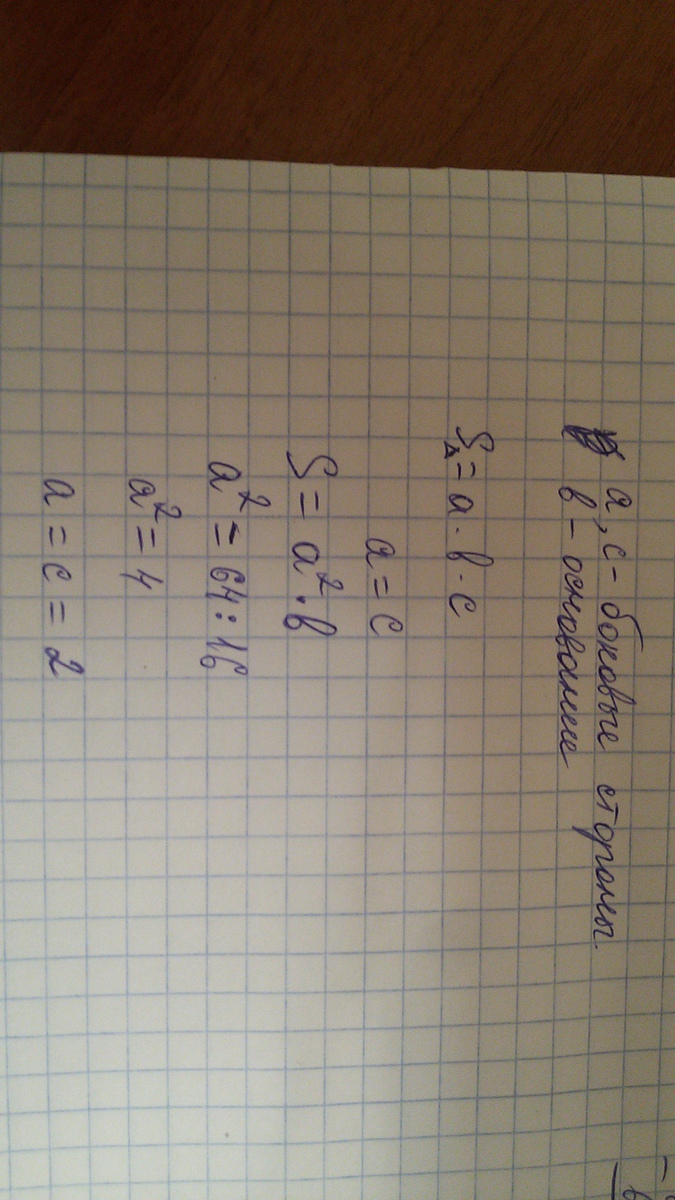 а, с - боковые стороны.
в - основание
S△ = a · в · c
a = c
S = a² · в
a² = 64 : 16
a² = 4
a = c = 2